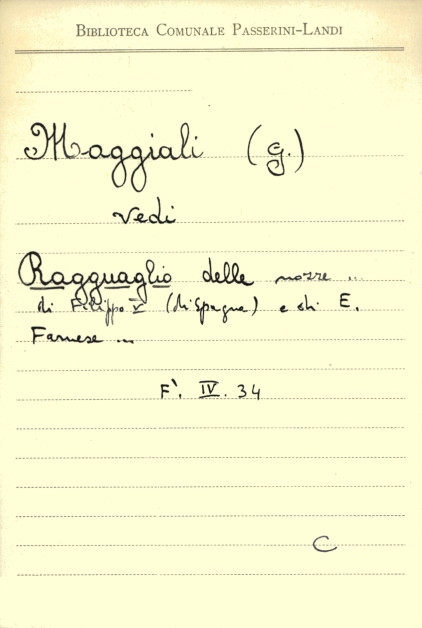 BIBLIOTECA COMUNALE PASSERINI-LANDI
Maggiali (G.)
vedi
Ragguaglio delle nozze ..
di Filippo V (di Spagna) e di E.
Farnese ...
F`. IV. 34
C